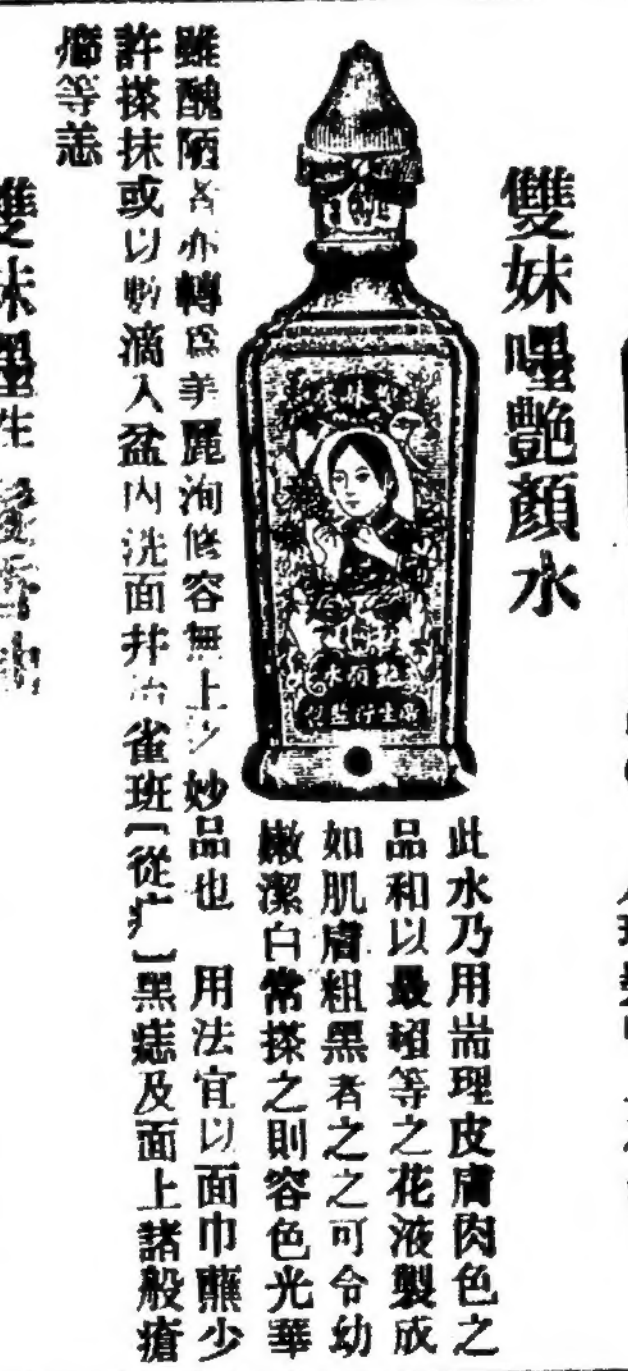 雙妹嚜艷顏水
此水乃用耑理皮膚肉色之
品和以最超等之花液製成
如肌膚粗黑者之之可令幼
嫩潔白常搽之則容色光華
雖醜陋者亦轉爲美麗洵修容無上之妙品也 用法宜以面巾蘸少
許搽抹或以數滴入盆內洗面并治雀斑〔從疒〕黑痣及面上諸般瘡
癤等恙
雙妹嚜生髮